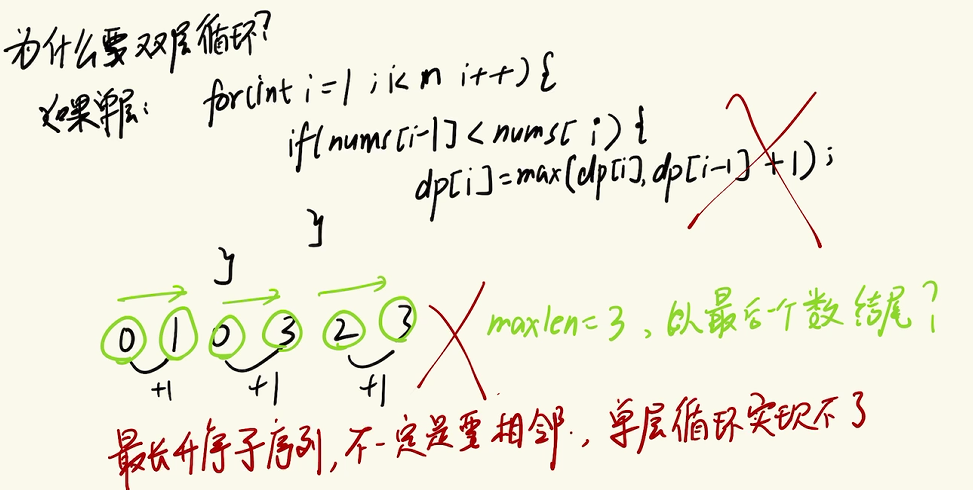 为什么要双层循环?
如果单层: for(int i=1;i<n i++){
if(nums[i-1]<nums[i){
dp[i]=max(dp[i],dp[i-1]+1);
}
}
0 1 0 3 2 3 maxlen=3,以最后一个数结尾?
+1 +1 +1
最长升序子序列,不一定是要相邻.,单层循环实现不了